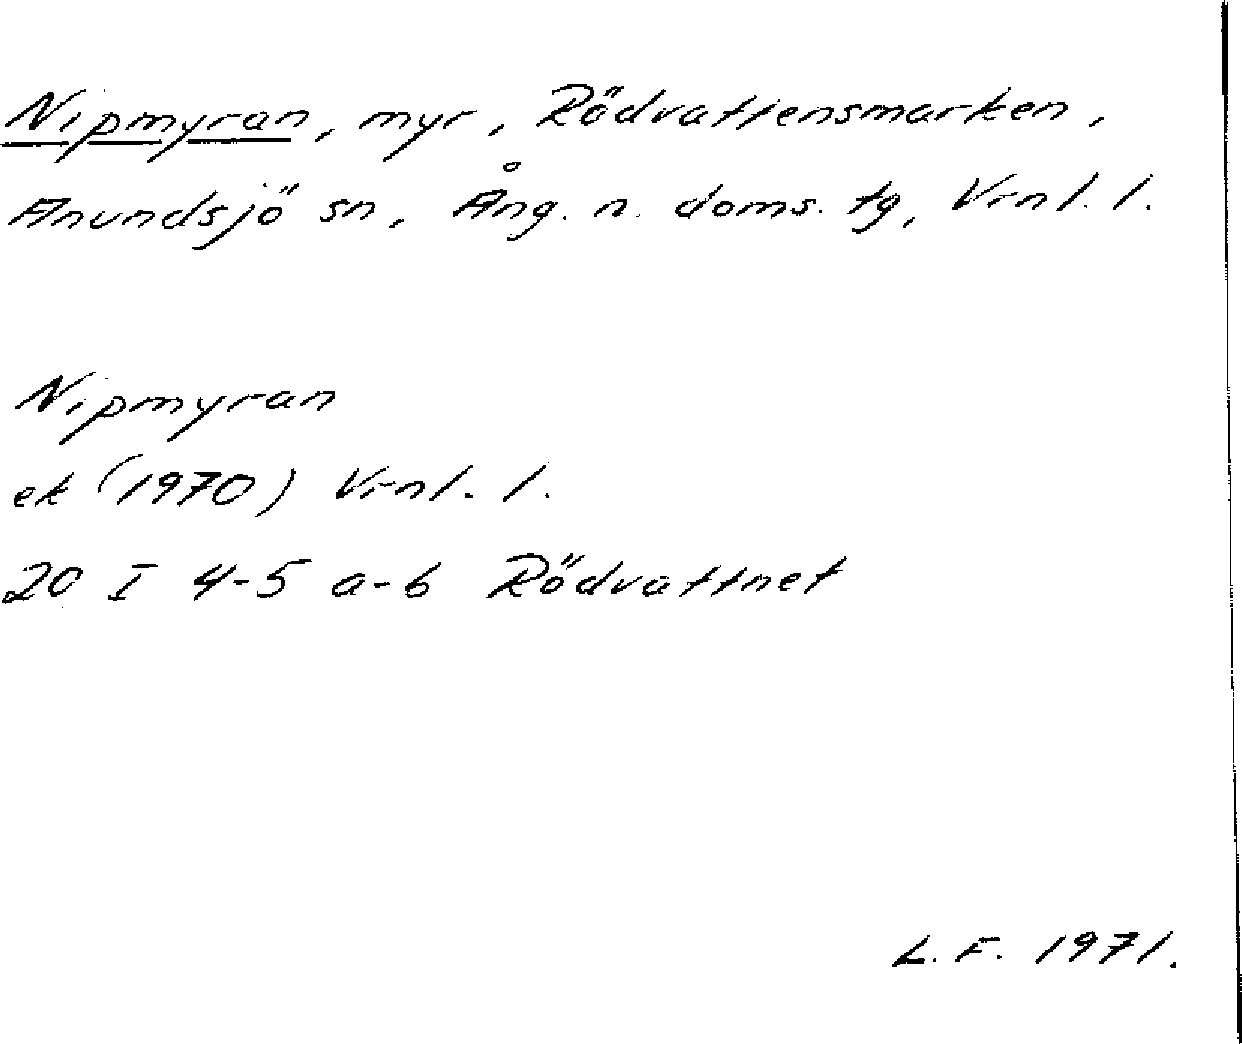 Nipmyran, myr, Rödvattensmarken,
Anundsjö sn, Ång. n. doms. tg, Vrnl. l.
Nipmyran
ek (1970) Vrnl. l.
20 I 4-5 a-b Rödvattnet
L. F. 1971.